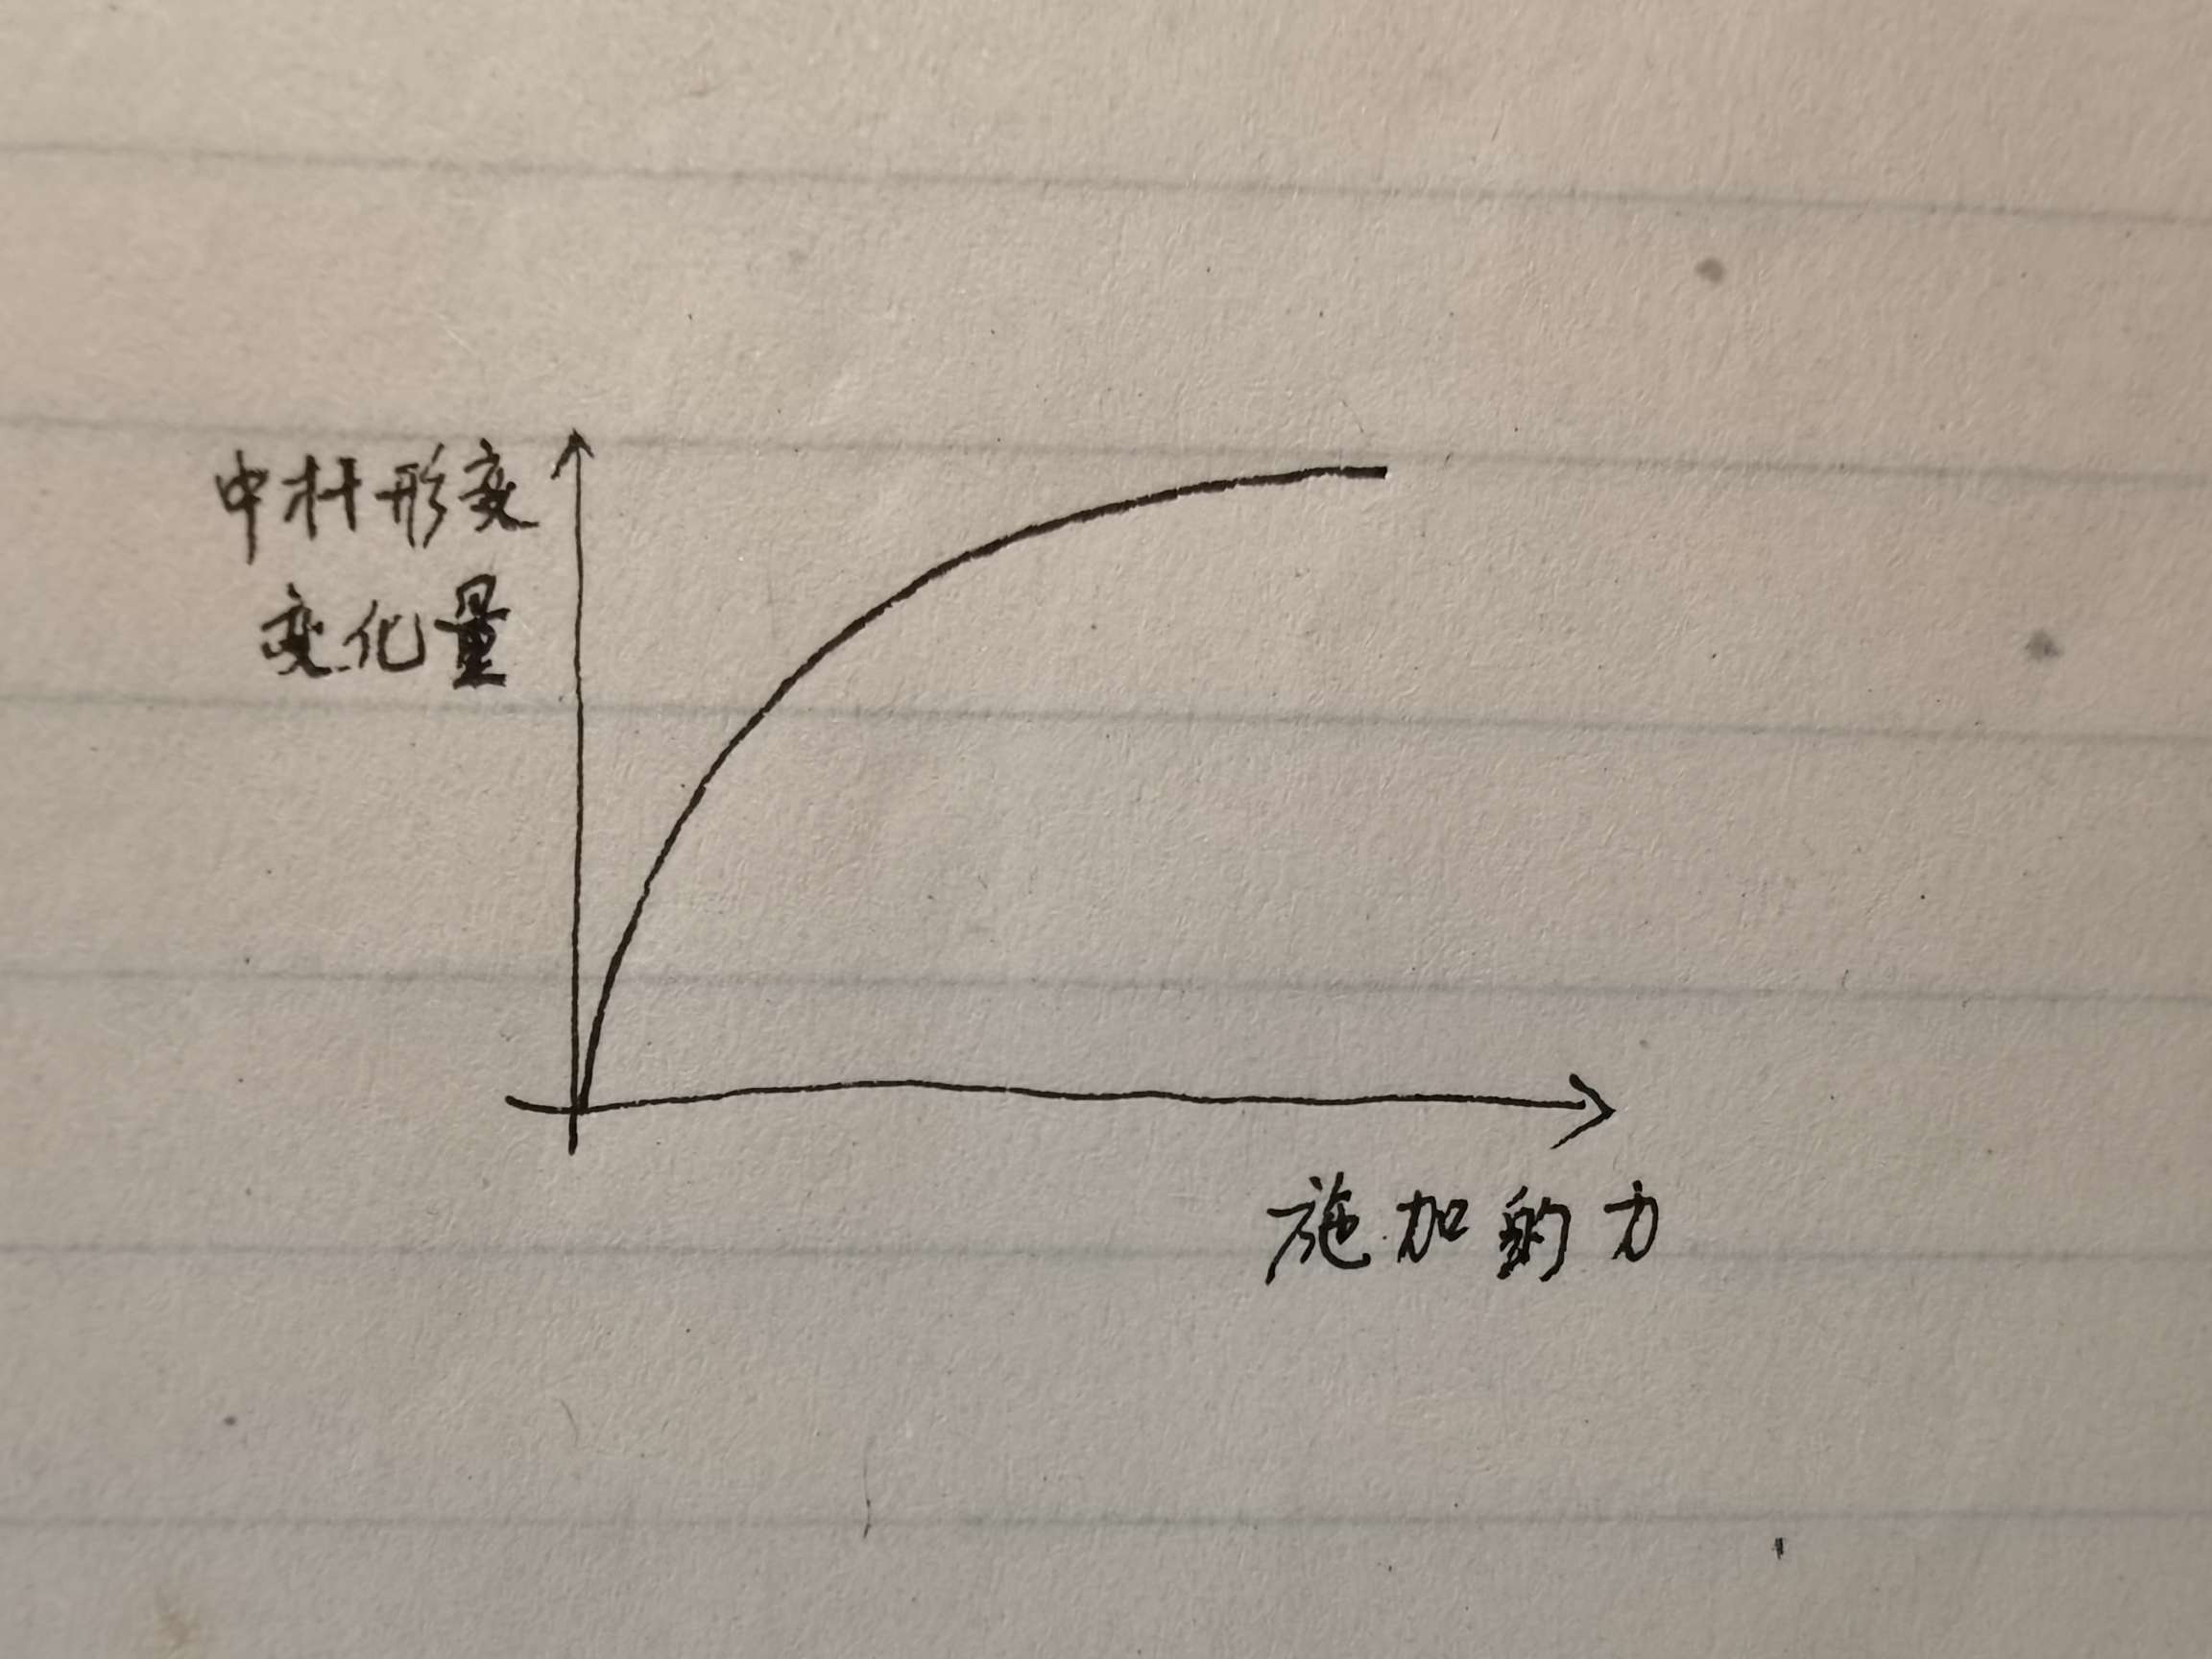 中杆形变
变化量
施加的力